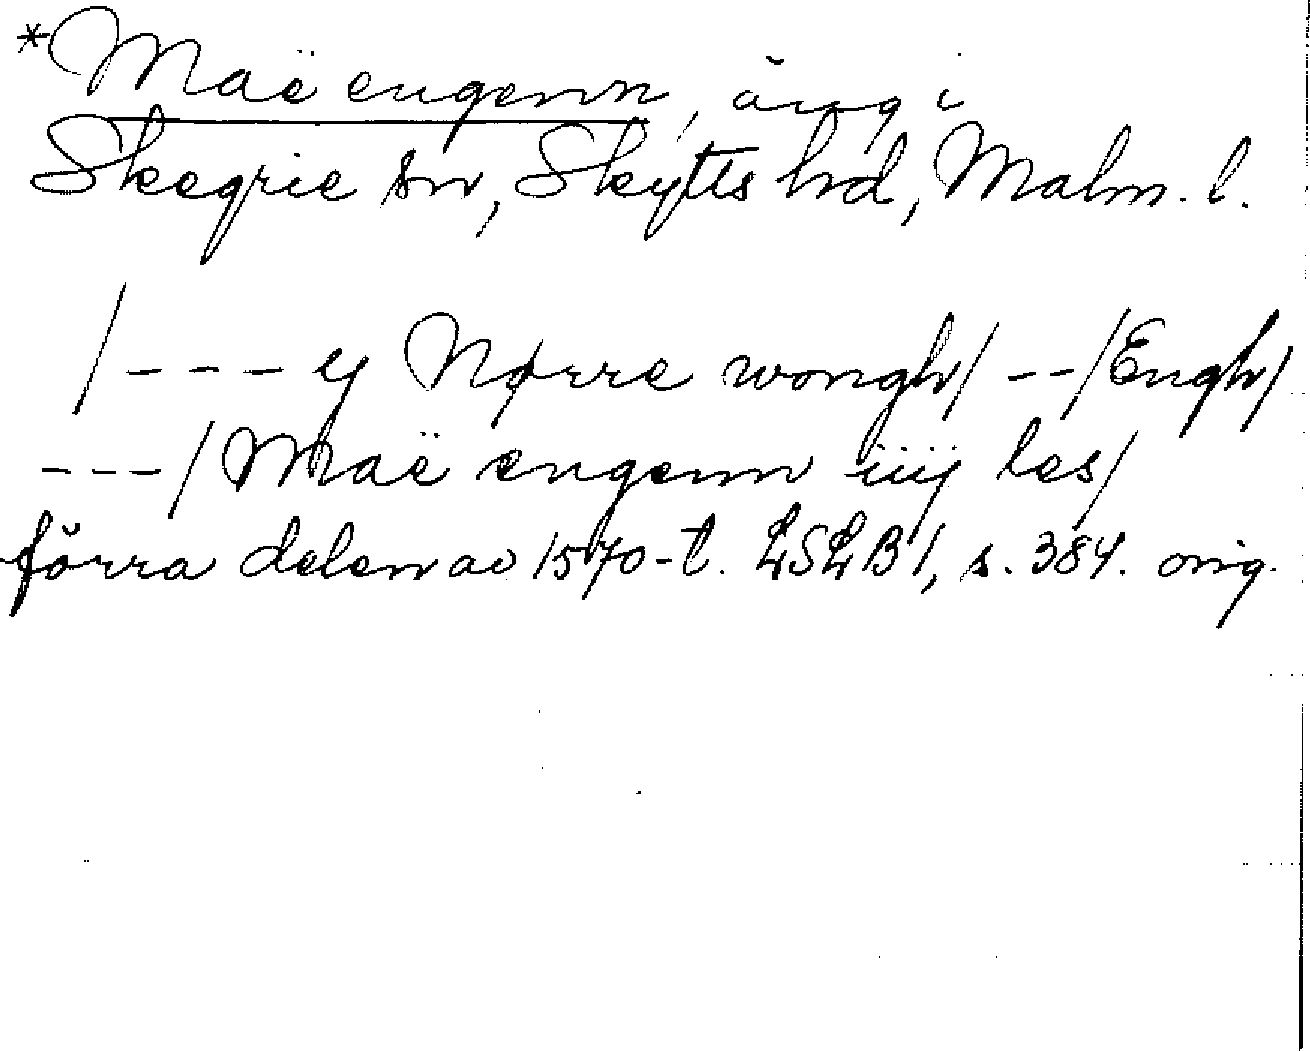 *Maë engenn, äng i
Skegrie sn, Skytts hd, Malm. l.
/--- ij Nørre wongh/ --/Engh/
---/Maë engenn iiij les/
förra delen av 1570-t. LSLB I, s. 384. orig.